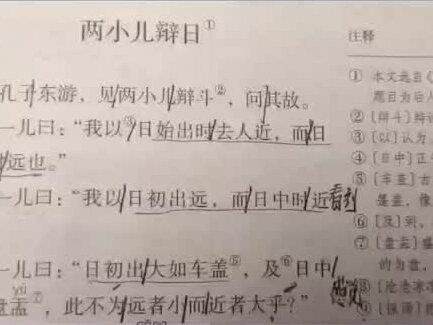 两小儿辩日①
孔子东游，见两小儿辩斗②，问其故。
一儿曰：“我以③日始出时去人近，而日
远也。”
一儿曰：“我以日初出远，而日中时近看到
一儿曰：“日初出大如车盖⑤，及⑥日中
yú
盘盂⑦，此不为远者小而近者大乎？”
注释
① 本文选自《
题目为后人
②［辩斗］辩
③［以］认为
④［日中］正
⑤［车盖］古
篷，像
⑥［及］到，
⑦［盘盂］盛
的为盘，
⑧［沧沧凉凉
⑨［探汤］